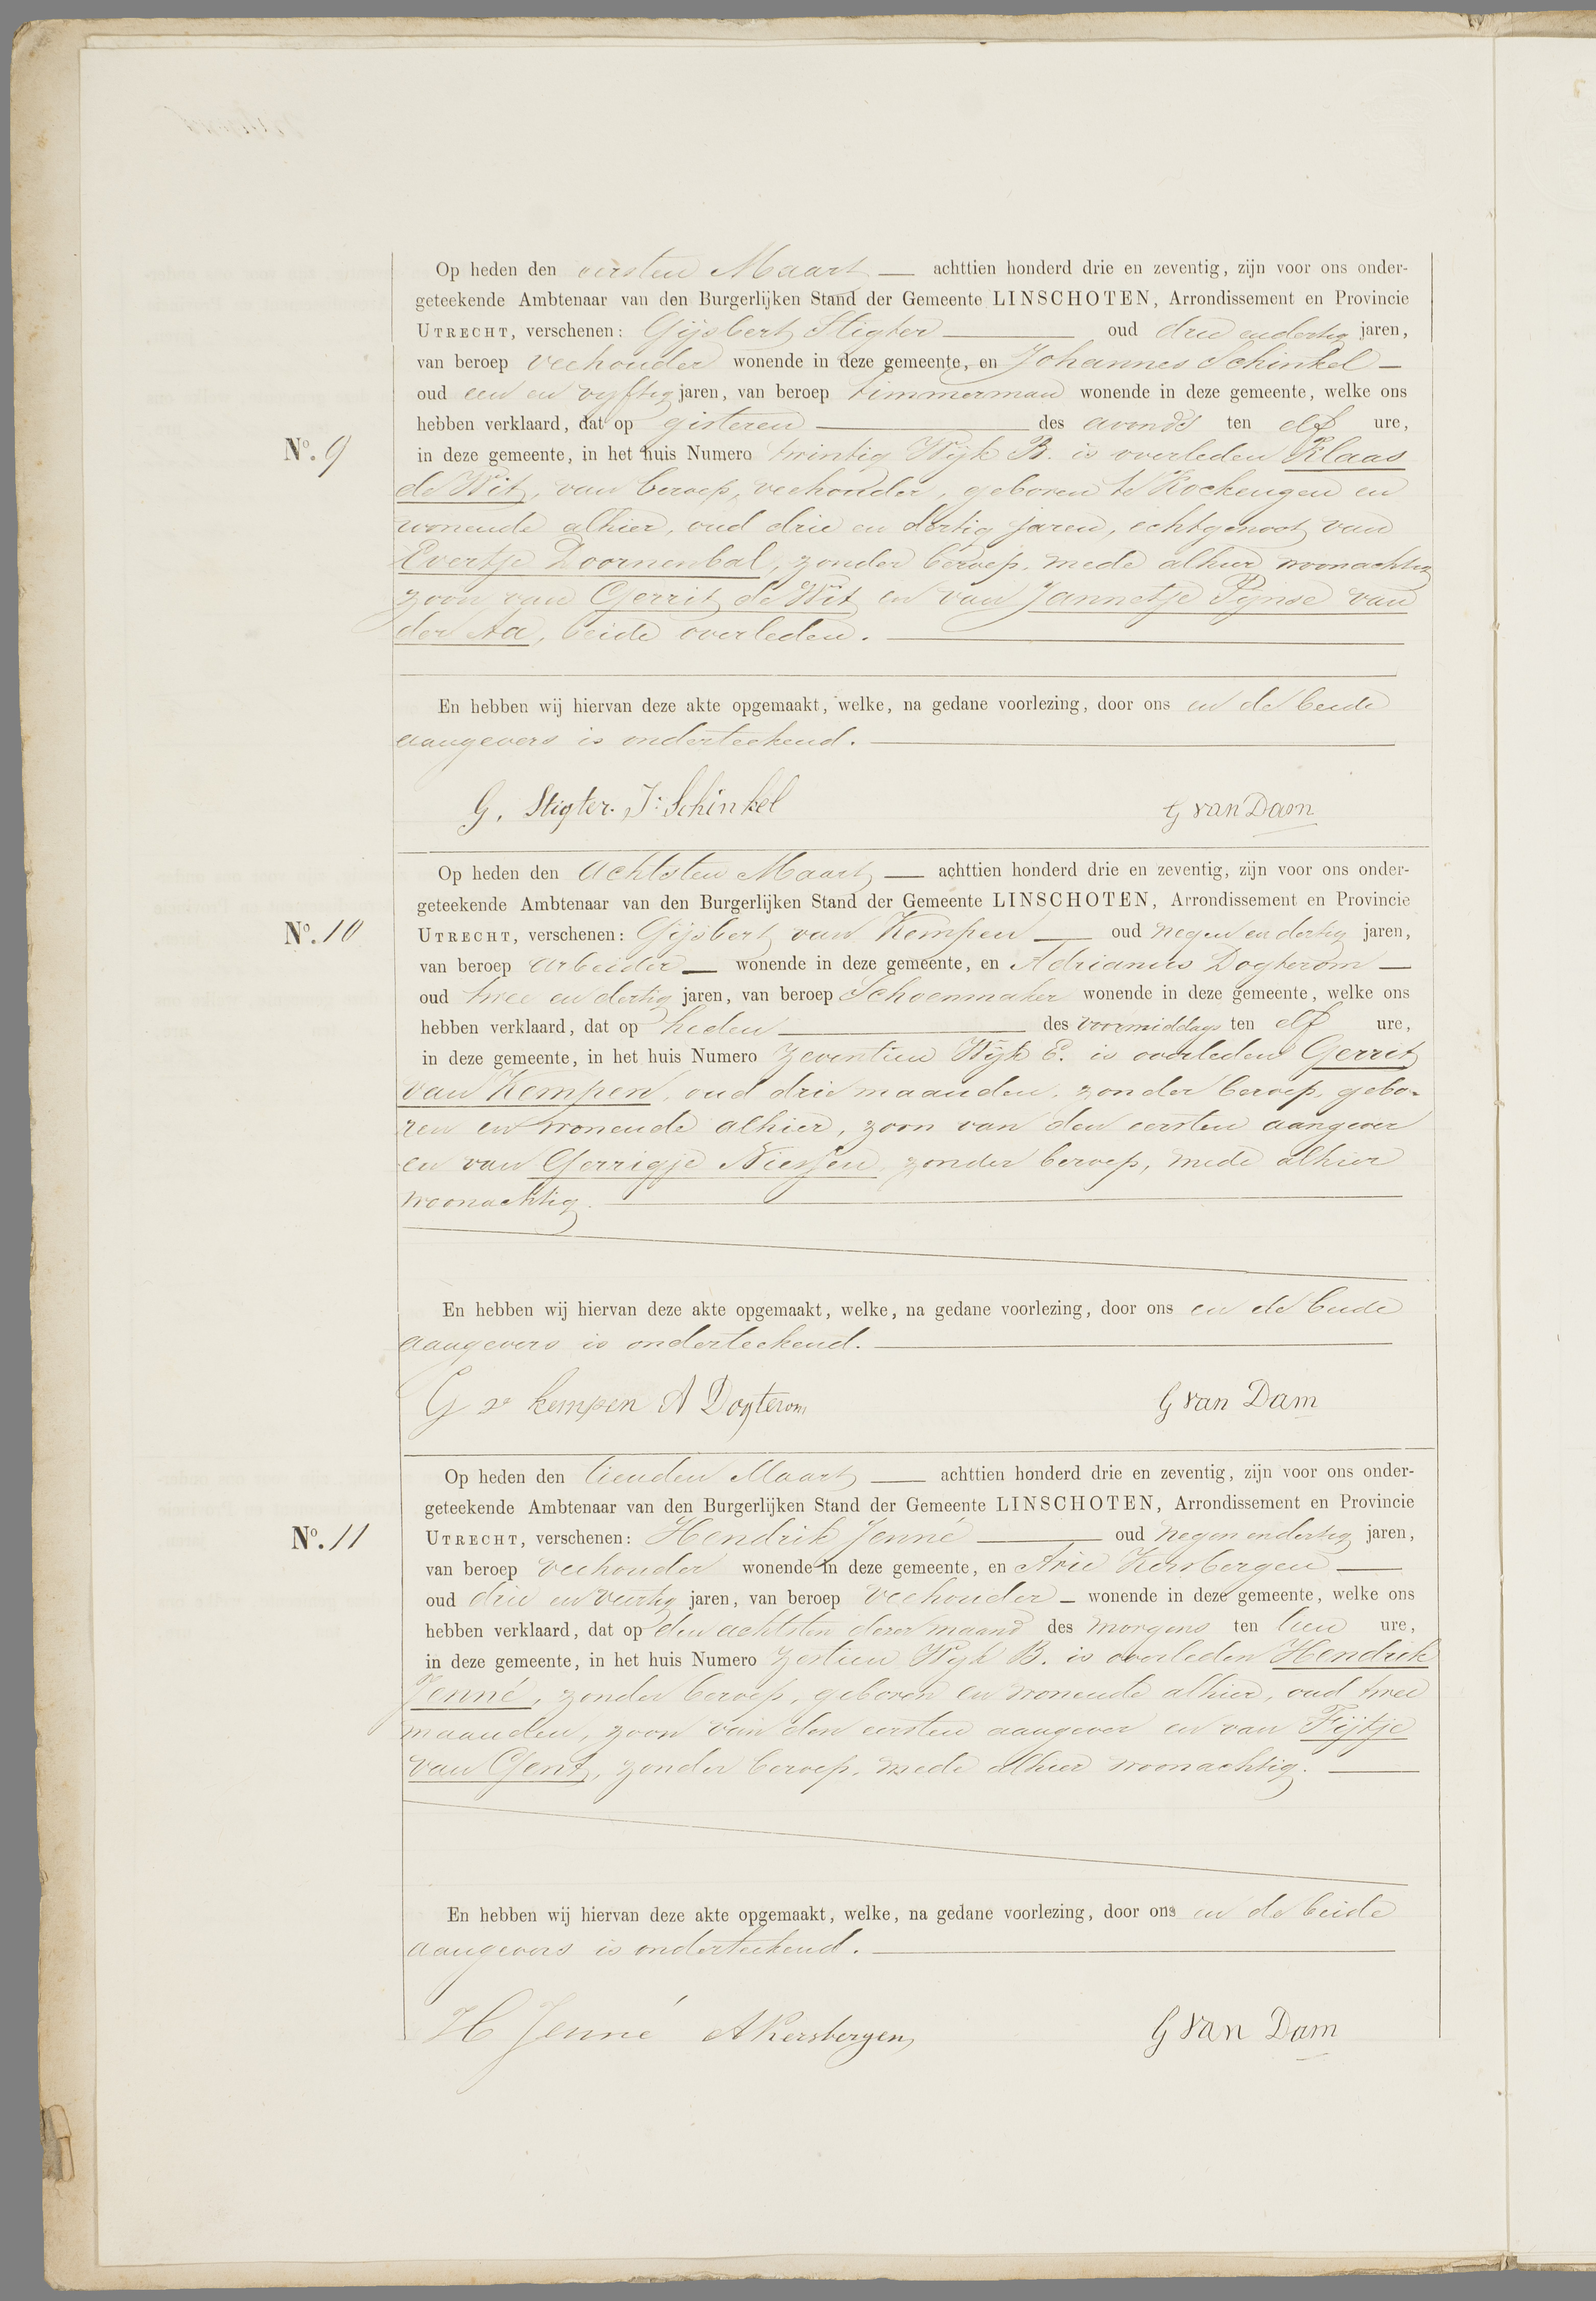 Op heden den eersten Maart — achttien honderd drie en zeventig, zijn voor ons onder-
geteekende Ambtenaar van den Burgerlijken Stand der Gemeente LINSCHOTEN, Arrondissement en Provincie
UTRECHT, verschenen: Gijsbert Stigter — oud drie en dertig jaren,
van beroep veehouder wonende in deze gemeente, en Johannes Schinkel —
oud een en vyftig jaren, van beroep timmerman wonende in deze gemeente, welke ons
hebben verklaard, dat op gisteren — des avonds ten elf ure,
No. 9
in deze gemeente, in het huis Numero twintig Wijk B. is overleden Klaas
de Wit, van beroep, veehouder, geboren te Kockengen en
wonende alhier, oud drie en dertig jaren, echtgenoot van
Evertje Doornenbal, zonder beroep, mede alhier woonachtig
zoon van Gerrit de Wit en van Jannetje Pynse van
der Aa, beide overleden. —
En hebben wij hiervan deze akte opgemaakt, welke, na gedane voorlezing, door ons en de beide
aangevers is onderteekend. —
G. Stigter. J: Schinkel G van Dam
Op heden den achtsten Maart — achttien honderd drie en zeventig, zijn voor ons onder-
geteekende Ambtenaar van den Burgerlijken Stand der Gemeente LINSCHOTEN, Arrondissement en Provincie
No. 10
UTRECHT, verschenen: Gijsbert van Kempen — oud negen en dertig jaren,
van beroep arbeider — wonende in deze gemeente, en Adrianus Dogterom —
oud twee en dertig jaren, van beroep Schoenmaker wonende in deze gemeente, welke ons
hebben verklaard, dat op heden — des voormiddags ten elf ure,
in deze gemeente, in het huis Numero zeventien Wijk E. is overleden Gerrit
van Kempen, oud drie maanden, zonder beroep, gebo-
ren en wonende alhier, zoon van den eersten aangever
en van Gerrigje Niessen, zonder beroep, mede alhier
woonachtig. —
En hebben wij hiervan deze akte opgemaakt, welke, na gedane voorlezing, door ons en de beide
aangevers is onderteekend. —
G v Kempen A Dogterom G van Dam
Op heden den tienden Maart — achttien honderd drie en zeventig, zijn voor ons onder-
geteekende Ambtenaar van den Burgerlijken Stand der Gemeente LINSCHOTEN, Arrondissement en Provincie
No. 11
UTRECHT, verschenen: Hendrik Jenné — oud negen en dertig jaren,
van beroep veehouder wonende in deze gemeente, en Arie Kersbergen —
oud drie en veertig jaren, van beroep veehouder — wonende in deze gemeente, welke ons
hebben verklaard, dat op den achtsten dezer maand des morgens ten tien ure,
in deze gemeente, in het huis Numero zestien Wyk B. is overleden Hendrik
Jenné, zonder beroep, geboren en wonende alhier, oud twee
maanden, zoon van den eersten aangever en van Fijtje
van Gent, zonder beroep, mede alhier woonachtig. —
En hebben wij hiervan deze akte opgemaakt, welke, na gedane voorlezing, door ons en de beide
aangevers is onderteekend. —
H Jenné A Kersbergen G van Dam